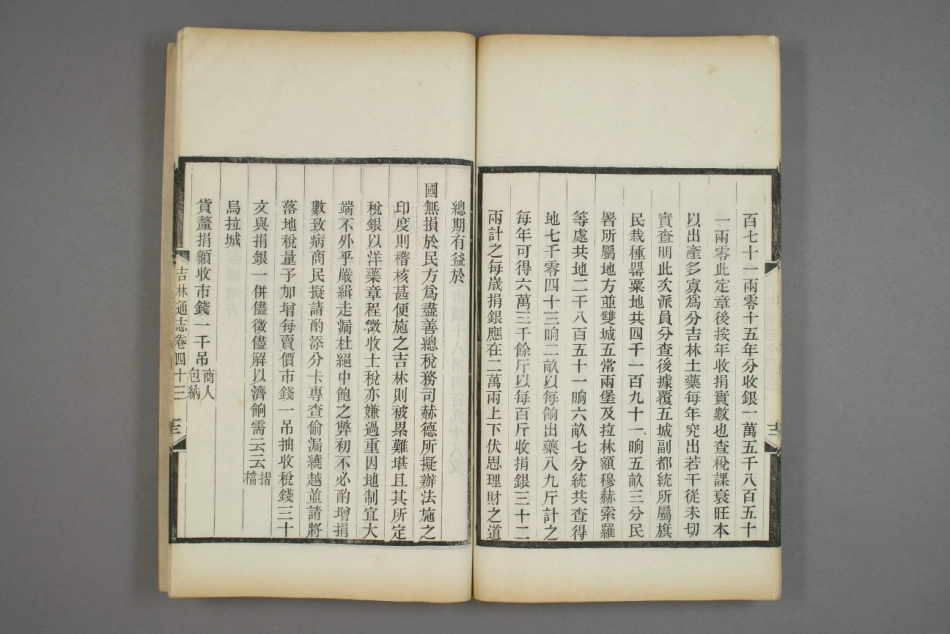 百七十一兩零十五年分收銀一萬五千八百五十
一兩零此定章後按年收捐實數也查稅課衰旺本
以出產多寡爲分吉林土藥每年究出若干從未切
實查明此次派員分查後據覆五城副都統所屬旗
民栽種罌粟地共四千一百九十一晌五畝三分民
署所屬地方並雙城五常兩堡及拉林額穆赫索羅
等處共地二千八百五十一晌六畝七分統共查得
地七千零四十三晌二畝以每晌出藥八九斤計之
每年可得六萬三千餘斤以每百斤收捐銀三十二
兩計之每歲捐銀應在二萬兩上下伏思理財之道
總期有益於
國無損於民方爲盡善總稅務司赫德所擬辦法施之
印度則稽核甚便施之吉林則被累難堪且其所定
稅銀以洋藥章程徵收土稅亦嫌過重因地制宜大
端不外乎嚴緝走漏杜絕中飽之弊初不必酌增捐
數致病商民擬請酌添分卡專查偷漏繞越並請將
落地稅量予加增每賣價市錢一吊抽收稅錢三十
文與捐銀一併儘徵儘解以濟餉需云云檔摺
烏拉城
貨釐捐額收市錢一千吊商人包納
吉林通志卷四十三